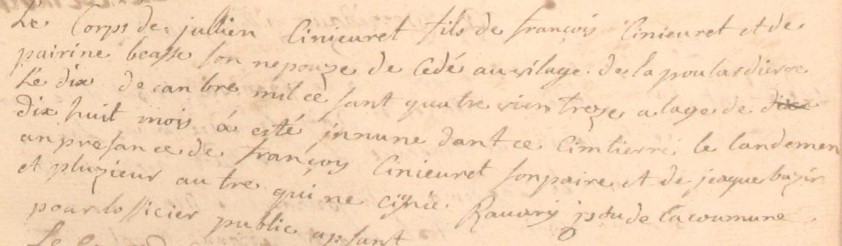 Le Corps de jullien Cinieuret fils de françois Cinieuret et de
pairine beasse son nepouze de Cedé au vilage de la poulardierre
Le dix de canbre mil ce sant quatre vien treze a lage de
dix huit mois á esté innune dant ce Cimtierre le landemen
an presance de françoy Cinieuret son paire et de jeaque
et pluzieur autre qui ne cignie Ravary de la coumune
pour lofficier public apsant
Le